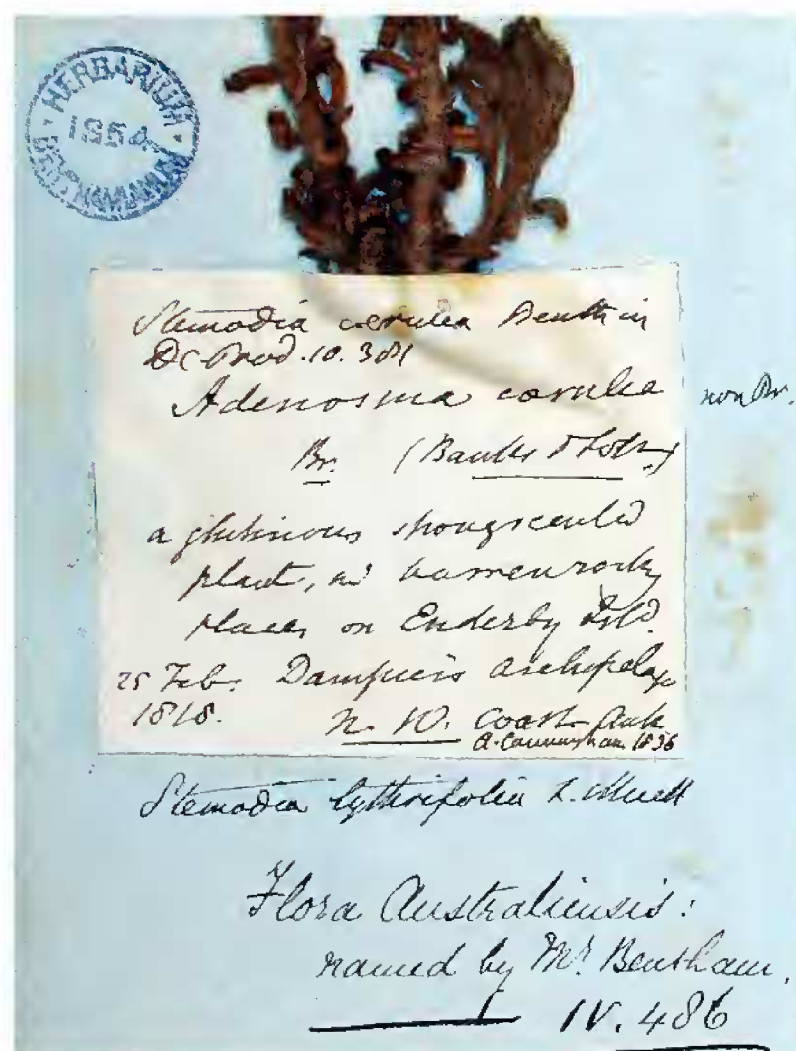 HERBARIUM
1854
BENTHAMIANUM
Stemodia cærulea Benth in
DC Prod. 10. 381
Adenosma cærulea non Br.
Br. (Banks & Sol.)
a glutinous strongscented
plant, in barren rocky
places on Enderby Isld.
25 Feb. Dampiers Archipelago
1818. N. W. Coast Aust
A. Cunningham 1836
Stemodia lythrifolia F. Muell
Flora Australiensis:
named by Mr. Bentham.
IV. 486